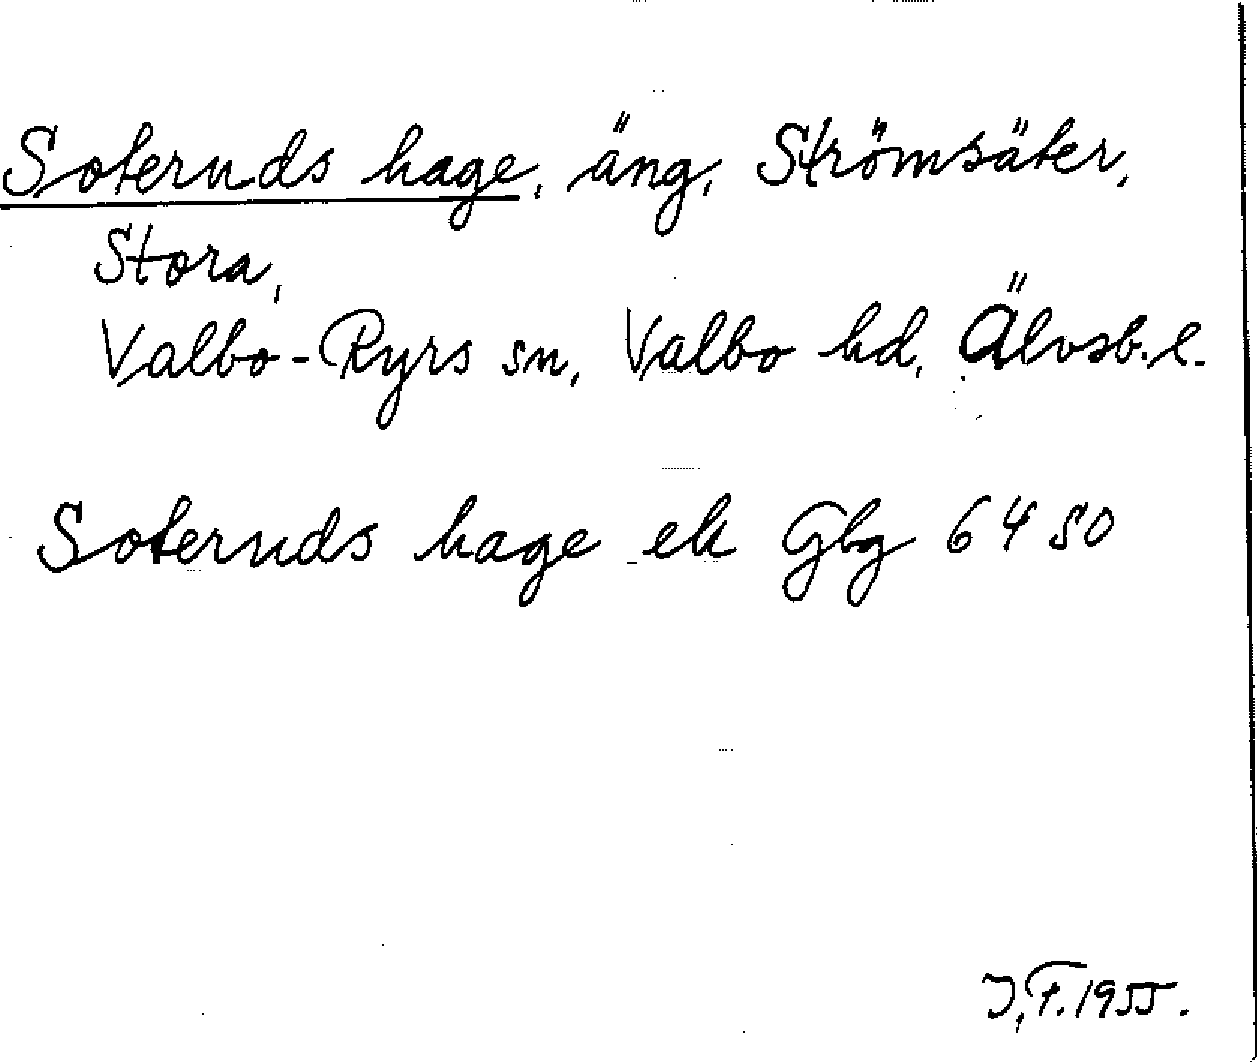 Soteruds hage, äng, Strömsäter,
Stora,
Valbo-Ryrs sn, Valbo hd, Älvsb. l.
Soteruds hage ek Gbg 6450
J, F. 1955.